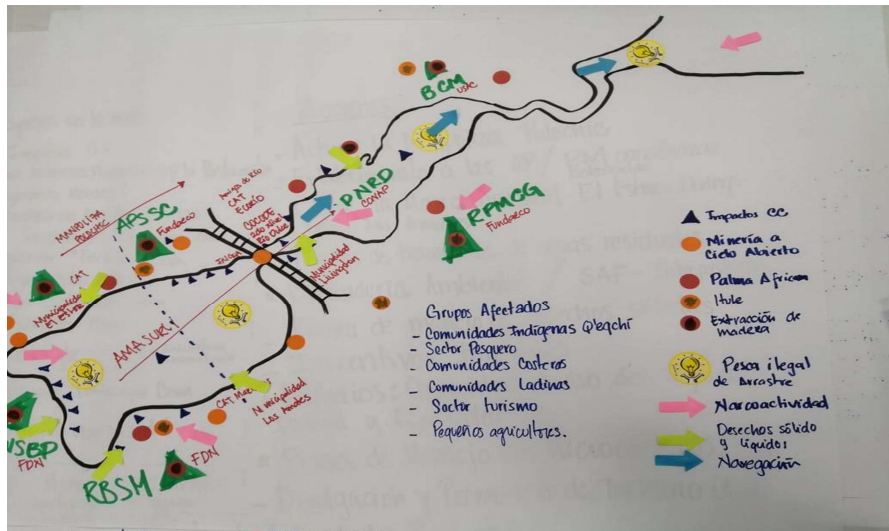 BCM
USAC
PNRD
CONAP
RPMCG
Fundaeco
APSSC
Fundaeco
MANPOLIPA
Amigo de Río
CAT
COCODE
Río Dulce
Inlaga
Municipalidad
Livingston
CAT
Municipalidad
El Estor
AMASURLI
CAT
Municipalidad
Los Amates
FDN
RBSM
FDN
Grupos Afectados
- Comunidades Indígenas Q'eqchí
- Sector Pesquero
- Comunidades Costeras
- Comunidades Ladinas
- Sector turismo
- Pequeños agricultores.
Impactos CC
Minería a
Cielo Abierto
Palma African
Hule
Extracción de
madera
Pesca ilegal
de Arrastre
Narcoactividad
Desechos sólido
y líquidos
Navegación